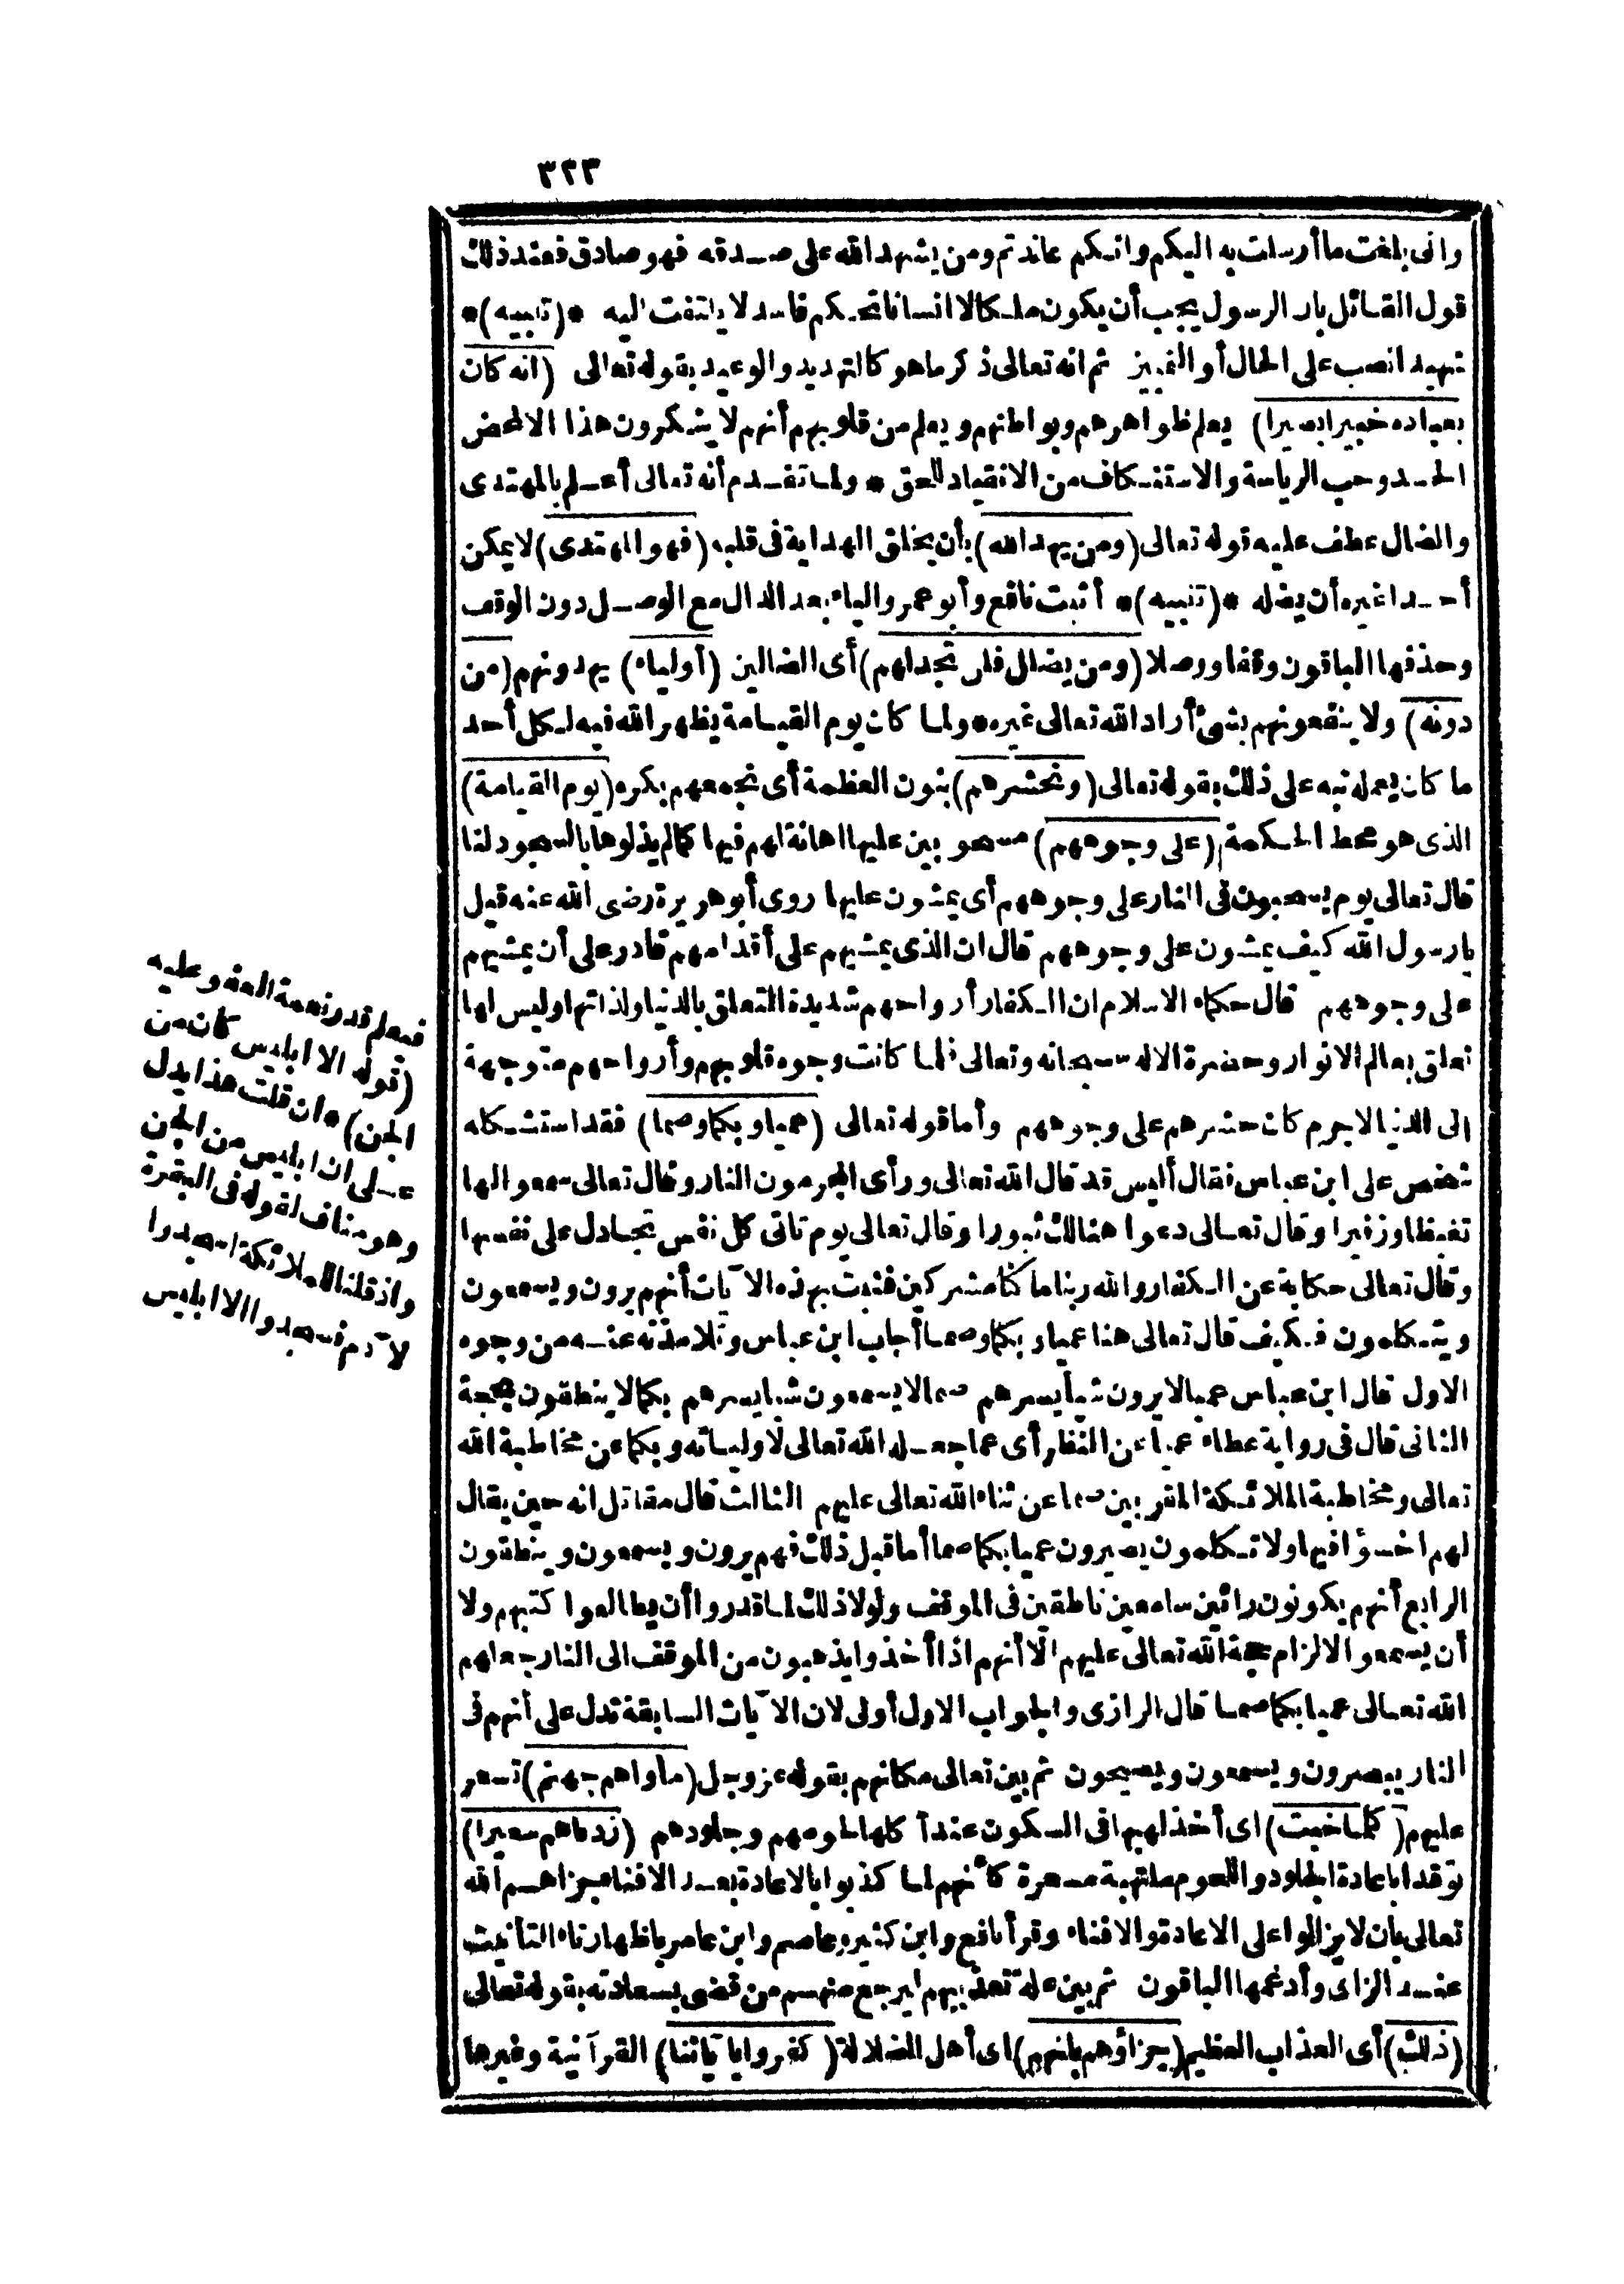 ٣٢٣
وانى بلغت ما أرسلت به اليكم وانكم عاندتم ومن يشهد الله على صدقه فهو صادق فعند ذلك
قول القائل بان الرسول يجب أن يكون ملكا لا انسانا تحكم فاسد لا يلتفت اليه * (تنبيه) *
شهيدا نصب على الحال أو التمييز ثم انه تعالى ذكر ما هو كالتهديد والوعيد بقوله تعالى (انه كان
بعباده خبيرا بصيرا) يعلم ظواهرهم وبواطنهم ويعلم من قلوبهم أنهم لا يشكرون هذا الا لمحض
الحسد وحب الرياسة والاستنكاف من الانقياد للحق * ولما تقدم أنه تعالى أعلم بالمهتدى
والضال عطف عليه قوله تعالى (ومن يهد الله) بأن يخلق الهداية فى قلبه (فهو المهتدى) لا يمكن
أحدا غيره أن يضله * (تنبيه) * أثبت نافع وأبو عمرو الياء بعد الدال مع الوصل دون الوقف
وحذفها الباقون وقفا ووصلا (ومن يضلل فلن تجد لهم) أى الضالين (أولياء) يهدونهم (من
دونه) ولا ينفعونهم بشئ أراد الله تعالى غيره * ولما كان يوم القيامة يظهر الله فيه لكل أحد
ما كان يعمله نبه على ذلك بقوله تعالى (ونحشرهم) بنون العظمة أى نجمعهم بكره (يوم القيامة)
الذى هو محط الحكمة (على وجوههم) مسحوبين عليها اهانة لهم فيها كما لم يذلوها بالسجود لنا
قال تعالى يوم يسحبون فى النار على وجوههم أى يمشون عليها روى أبو هريرة رضى الله عنه قيل
يا رسول الله كيف يمشون على وجوههم قال ان الذى يمشيهم على أقدامهم قادر على أن يمشيهم
على وجوههم قال حكاء الاسلام ان الكفار أرواحهم شديدة التعلق بالدنيا ولذاتها وليس لها
تعلق بعالم الانوار وحضرة الاله سبحانه وتعالى فلما كانت وجوه قلوبهم وأرواحهم متوجهة
الى الدنيا لاجرم كان حشرهم على وجوههم وأما قوله تعالى (عميا وبكما وصما) فقد استشكله
شخص على ابن عباس فقال أليس قد قال الله تعالى ورأى المجرمون النار وقال تعالى سمعوا لها
تغيظا وزفيرا وقال تعالى دعوا هنالك ثبورا وقال تعالى يوم تاتى كل نفس تجادل على نفسها
وقال تعالى حكاية عن الكفار والله ربنا ما كنا مشركين فثبت بهذه الآيات أنهم يرون ويسمعون
ويتكلمون فكيف قال تعالى هنا عميا وبكما وصما أجاب ابن عباس وتلامذته عنه من وجوه
الاول قال ابن عباس عميا لا يرون شيأ يسرهم صما لا يسمعون شيا يسرهم بكما لا ينطقون بحجة
الثانى قال فى رواية عطاء عميا عن النظر أى عما جعله الله تعالى لاوليائه وبكما عن مخاطبة الله
تعالى ومخاطبة الملائكة المقربين صما عن ثناء الله تعالى عليهم الثالث قال مقاتل انه حين يقال
لهم اخسؤا فيها ولا تكلمون يصيرون عميا بكما صما أما قبل ذلك فهم يرون ويسمعون وينطقون
الرابع أنهم يكونون رائين سامعين ناطقين فى الموقف ولولا ذلك لما قدروا أن يطالعوا كتبهم ولا
أن يسمعوا الالزام حجة الله تعالى عليهم الا أنهم اذا أخذوا يذهبون من الموقف الى النار جعلهم
الله تعالى عميا بكما صما قال الرازى والجواب الاول أولى لان الآيات السابقة تدل على أنهم فى
النار يبصرون ويسمعون ويصيحون ثم بين تعالى مكانهم بقوله عز وجل (مأواهم جهنم) تسعر
عليهم (كلما خبت) اى أخذ لهبها فى السكون عند أكلها لحومهم وجلودهم (زدناهم سعيرا)
توقدا باعادة الجلود واللحوم ملتهبة مسعرة كأنهم لما كذبوا بالاعادة بعد الافناء جزاهم الله
تعالى بأن لا يزالوا على الاعادة والافناء وقرأ نافع وابن كثير وعاصم وابن عامر باظهار تاء التأنيث
عند الزاى وأدغمها الباقون ثم بين علة تعذيبهم ليرجع منهم من قضى بسعادته بقوله تعالى
(ذلك) أى العذاب العظيم (جزاؤهم بانهم) اى أهل الضلالة (كفروا بآياتنا) القرآنية وغيرها
فيعلم قدر نعمة العفو عليه
(قوله الا ابليس كان من
الجن) * ان قلت هذا يدل
على ان ابليس من الجن
وهو مناف لقوله فى البقرة
واذ قلنا للملائكة اسجدوا
لآدم فسجدوا الا ابليس